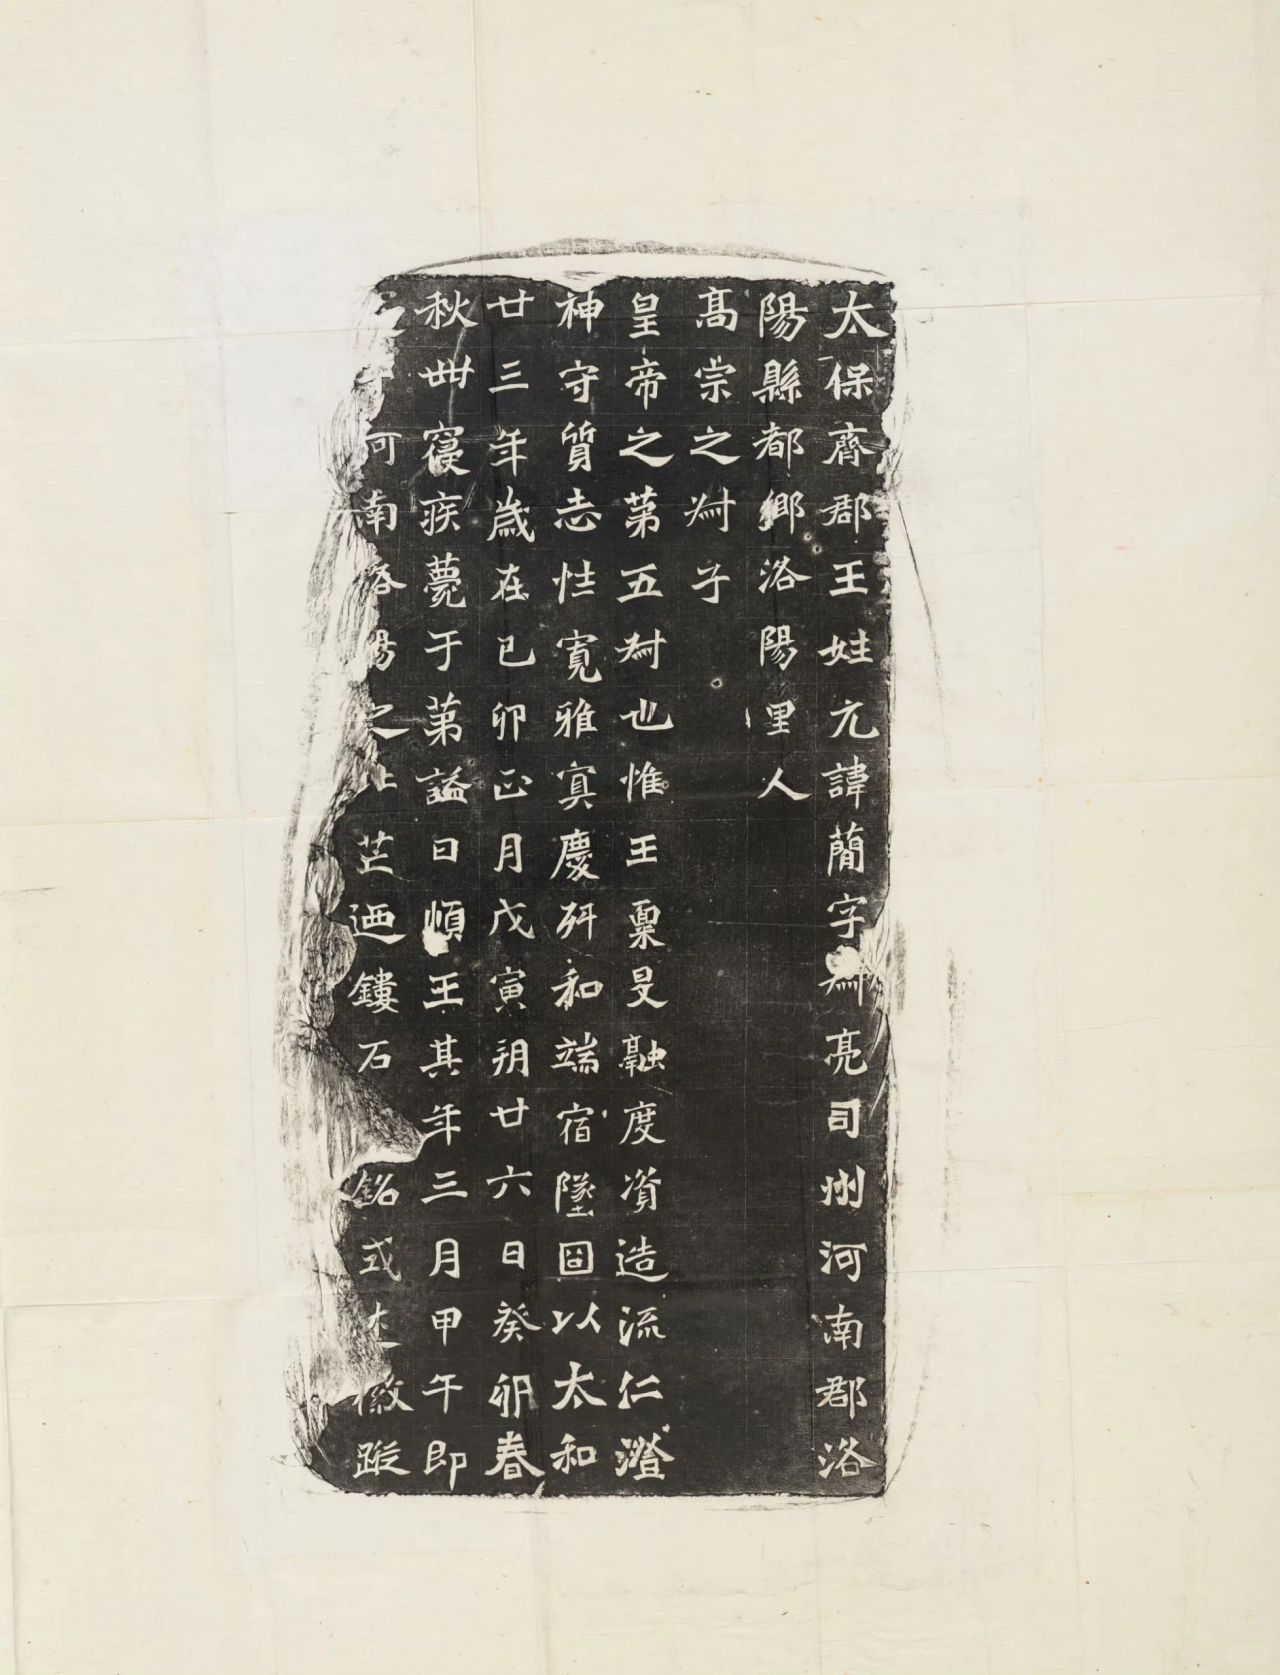 太保齊郡王姓元諱簡字叔亮司州河南郡洛
陽縣都鄉洛陽里人
高宗之叔子
皇帝之第五叔也惟王稟旻融度資造流仁澄
神守質志性寬雅寘慶砰和端宿墜圄以太和
廿三年歲在己卯正月戊寅朔廿六日癸卯春
秋卌寢疾薨于第謚曰順王其年三月甲午即
河南洛陽之北芒迺鏤石銘式述徽蹤